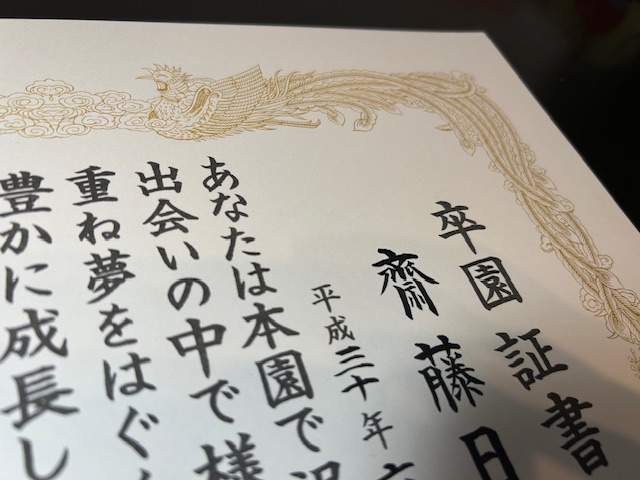 卒園証書
齋藤日
平成三十年
あなたは本園で
出会いの中で様
重ね夢をはぐ
豊かに成長し